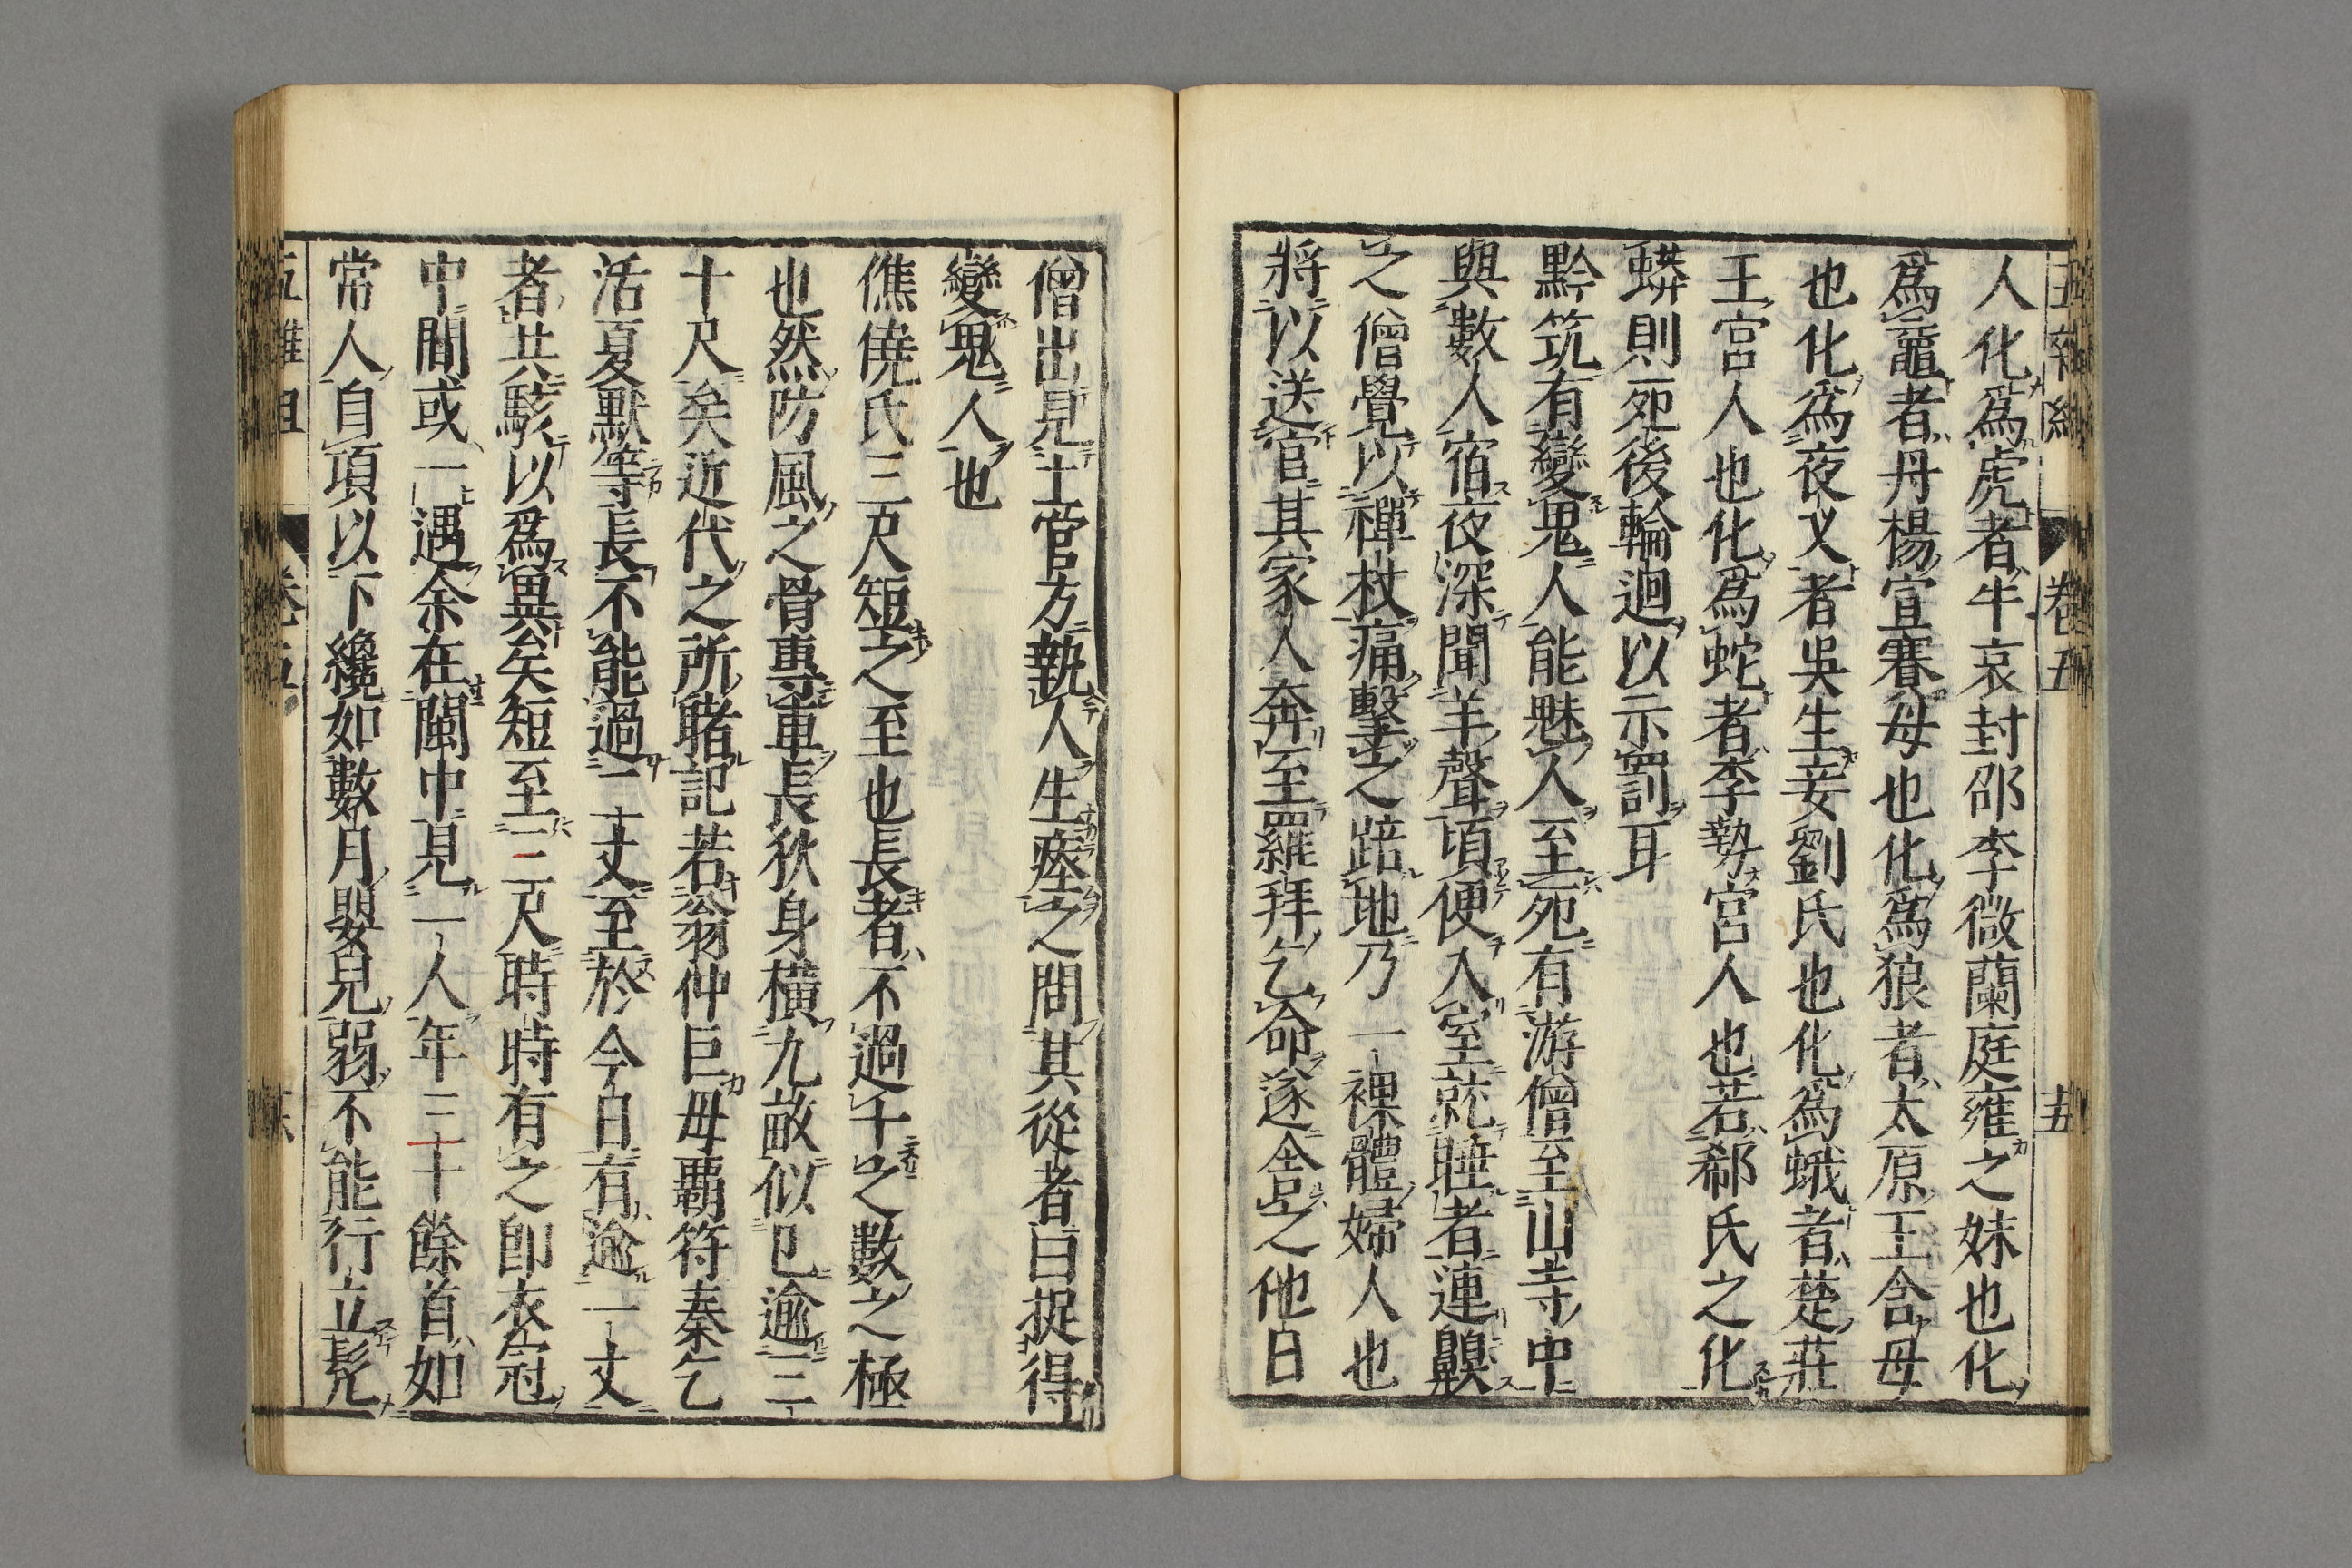 人化爲虎者牛哀封邵李微蘭庭雍之妹也化
爲黿者丹楊宣騫母也化爲狼者太原王含母
也化爲夜叉者吳生妾劉氏也化爲蛾者楚莊
王宮人也化爲蛇者李勢宮人也若郗氏之化
蟒則死後輪迴以示罰耳
黔筑有變鬼人能魅人至死有游僧至山寺中
與數人宿夜深聞羊聲頃便入室就睡者連鼾
之僧覺以禪杖痛擊之踣地乃一裸體婦人也
將以送官其家人奔至羅拜乞命遂舍之他日
僧出見土官方執人生瘞之問其從者曰捉得
變鬼人也
僬僥氏三尺短之至也長者不過十之數之極
也然防風之骨專車長狄身橫九畝似已逾二
十尺矣近代之所睹記若翁仲巨毋覇符秦乞
活夏默等長不能過二丈至於今日有逾一丈
者共駭以爲異矣短至二尺時時有之卽衣冠
中間或一遇余在閩中見一人年三十餘首如
常人自項以下纔如數月嬰兒弱不能行立髡
卷五
五雜組
卷五